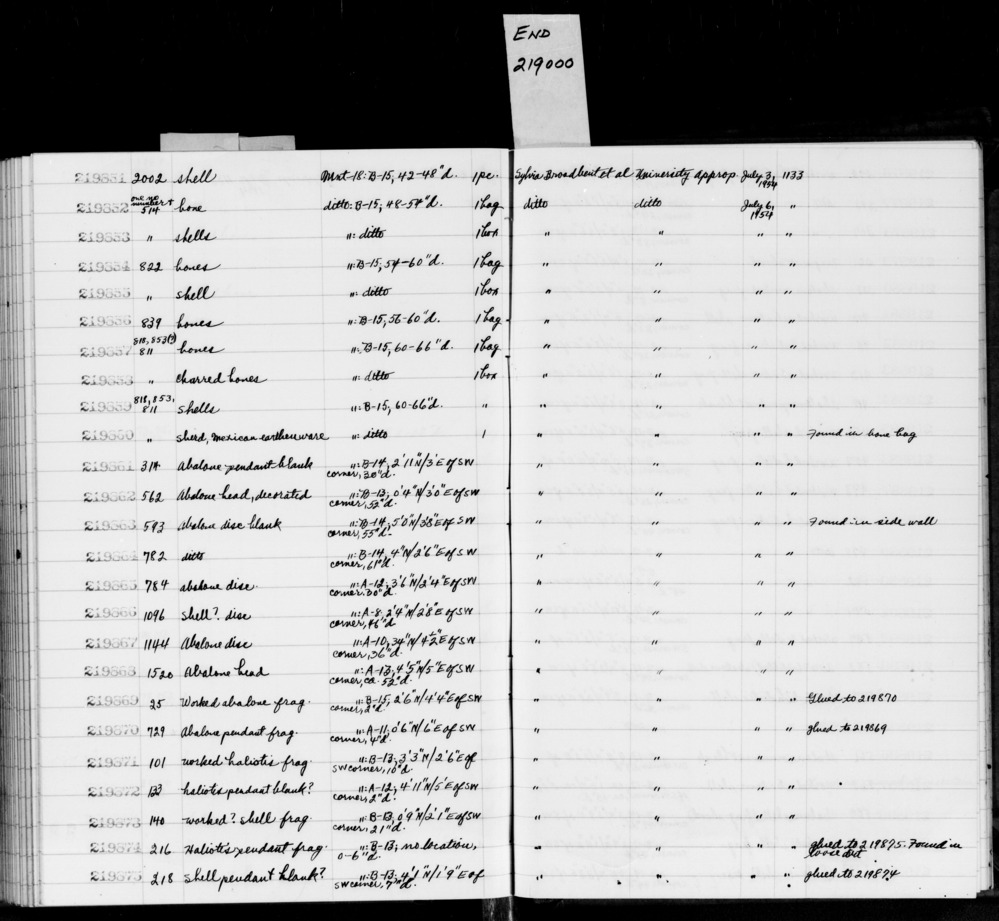 END
219000
219851 2002 shell Mnt-18: B-15, 42-48"d. 1 pc. Sylvia Broadbent et al University approp. July 3, 1954 1133
219852 one no number + 514 bone ditto: B-15, 48-54"d. 1 bag ditto ditto July 6, 1954 "
219853 " shells ": ditto 1 box " " " "
219854 822 bones ": B-15, 54-60"d. 1 bag " " " "
219855 " shell ": ditto 1 box " " " "
219856 839 bones ": B-15, 56-60"d. 1 bag " " " "
219857 818, 853(?) 811 bones ": B-15, 60-66"d. 1 bag " " " "
219858 " charred bones ": ditto 1 box " " " "
219859 818, 853, 811 shells ": B-15, 60-66"d. " " " " "
219860 " sherd, Mexican earthenware ": ditto 1 " " " " Found in bone bag
219861 314 Abalone pendant blank ": B-14, 2'11"N/3'E of SW
corner, 30"d. " " " "
219862 562 Abalone bead, decorated ": B-13, 0'4"N/3'0"E of SW
corner, 52"d. " " " "
219863 593 abalone disc blank ": B-14, 5'0"N/3'8"E of SW
corner, 55"d. " " " " Found in side wall
219864 782 ditto ": B-14, 4"N/2'6"E of SW
corner, 61"d. " " " "
219865 784 abalone disc. ": A-12, 3'6"N/2'4"E of SW
corner. 30"d. " " " "
219866 1096 shell? disc ": A-8, 2'4"N/2'8"E of SW
corner, 46"d " " " "
219867 1144 Abalone disc ": A-10, 34"N/4½"E of SW
corner, 36"d. " " " "
219868 1520 Abalone bead ": A-13, 4'5"N/5"E of SW
corner, ca. 52"d. " " " "
219869 25 Worked abalone frag. ": B-15, 2'6"N/4'4"E of SW
corner, 2"d. " " " " Glued to 219870
219870 729 Abalone pendant frag. ": A-11, 0'6"N/6"E of SW
corner, 4"d. " " " " glued to 219869
219871 101 worked haliotis frag. ": B-13, 3'3"N/2'6"E of
SW corner, 10"d. " " " "
219872 133 haliotis pendant blank? ": A-12, 4'11"N/5'E of SW
corner, 2"d. " " " "
219873 140 worked? shell frag. ": B-13, 0'9"N/2'1"E of SW
corner, 21"d. " " " "
219874 216 Haliotis pendant frag. ": B-13, no location,
0-6"d. " " " " glued to 219875. Found in
loose dirt
219875 218 shell pendant blank? ": B-13, 4'1"N/1'9"E of
SW corner, 7"d. " " " " glued to 219874